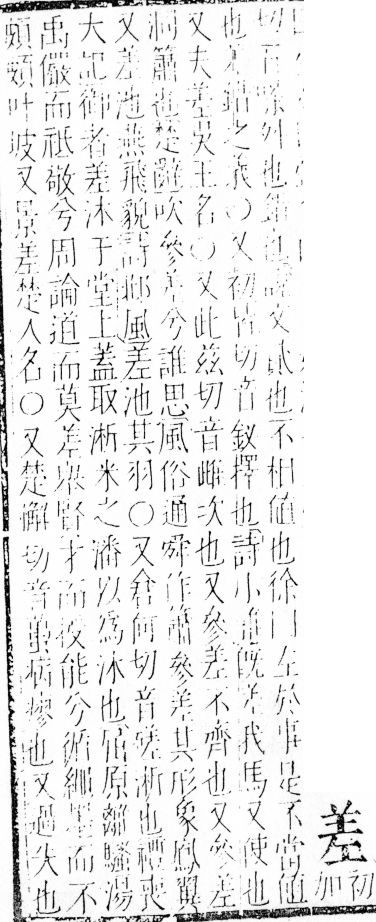 差初加
切音除外也錯也說文貳也不相值也徐曰左於事是不當值
也差錯之義○又初皆切音釵擇也詩小雅既差我馬又使也
又夫差吳王名○又此茲切音雌次也又參差不齊也又參差
洞簫也楚辭吹參差兮誰思風俗通舜作簫參差其形象鳳翼
又差池燕飛貌詩邶風差池其羽○又倉何切音磋淅也禮喪
大記御者差沐于堂上蓋取淅米之潘以為沐也屈原離騷湯
禹儼而祗敬兮周論道而莫差舉賢才而授能兮循繩墨而不
頗頗叶坡又景差楚人名○又楚懈切音蠆病瘳也又過失也